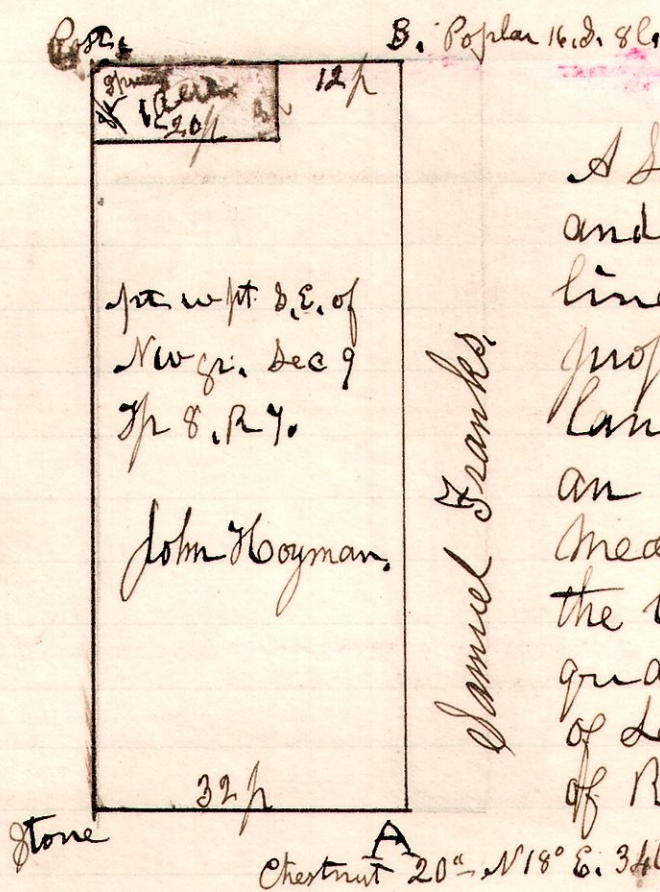 Post.
B. Poplar 16.d. 8l.
Spring
1 acre
20p
12p
pt w pt S.E. of
Nw qr. Sec 9
Tp 8, R 7.
John Hoyman.
Samuel Franks.
32p
Stone
A
Chestnut 20" N18° E. 34
A
and
line
prop
lan
an
Mea
the
qua
of Se
of R